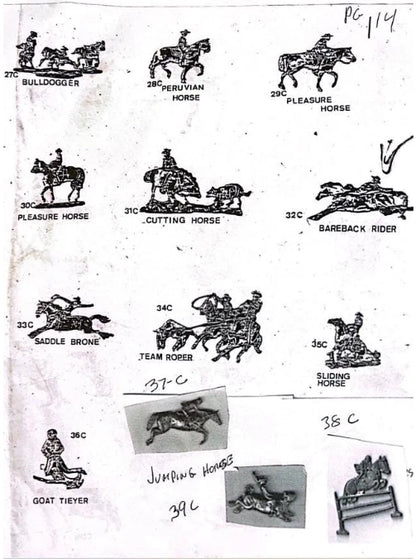 PG 114
27C
BULLDOGGER
28C
PERUVIAN
HORSE
29C
PLEASURE
HORSE
30C
PLEASURE HORSE
31C
CUTTING HORSE
32C
BAREBACK RIDER
33C
SADDLE BRONC
34C
TEAM ROPER
35C
SLIDING
HORSE
36C
GOAT TIEYER
37-C
JUMPING HORSE
38C
39C